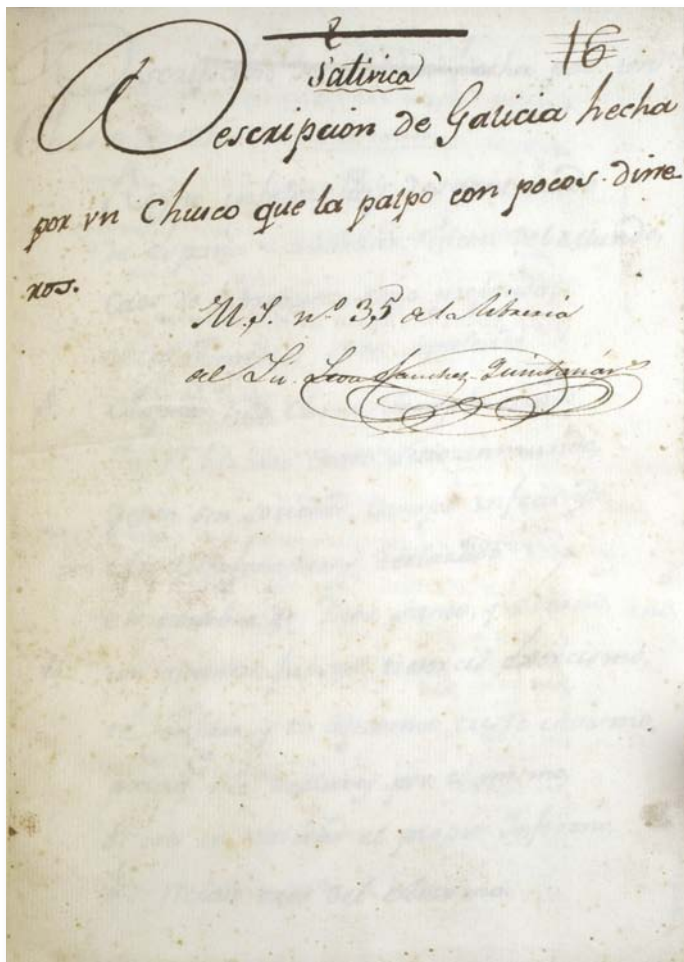 16
Satirica
Descripcion de Galicia hecha
por vn Chusco que la palpò con pocos dine
ros.
M.S. nº 35 de la libreria
del Lic. Sanchez Quintanar